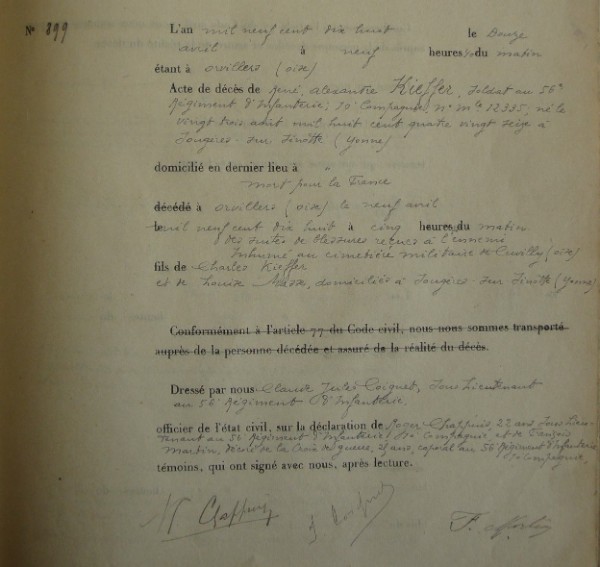 N° 899
L'an mil neuf cent dix huit le Douze
avril à neuf heures du matin
étant à orvillers (oise)
Acte de décès de René, alexandre Kieffer, soldat au 56e
Régiment d'Infanterie, 10e Compagnie, n° mle 12335, né le
vingt trois août mil huit cent quatre vingt seize à
Jougères-sur Finotte (Yonne)
domicilié en dernier lieu à "
mort pour la France
décédé à orvillers (oise) le neuf avril
le mil neuf cent dix huit à cinq heures du matin
des suites de blessures reçues à l'ennemi
Inhumé au cimetière militaire de Cuvilly (oise)
fils de Charles Kieffer
et de Louise Masse, domiciliés à Jougères-sur Finotte (Yonne)
Conformément à l'article 77 du Code civil, nous nous sommes transporté
auprès de la personne décédée et assuré de la réalité du décès.
Dressé par nous Claude Jules Coignet, Sous Lieutenant
au 56e Régiment d'Infanterie
officier de l'état civil, sur la déclaration de Roger Chappuis, 22 ans Sous Lieu-
tenant au 56e Régiment d'Infanterie 10e Compagnie, et de François
Martin, décoré de la Croix de guerre, ans, caporal au 56e Régiment d'Infanterie
10e Compagnie,
témoins, qui ont signé avec nous, après lecture.
Chappuis F. Martin